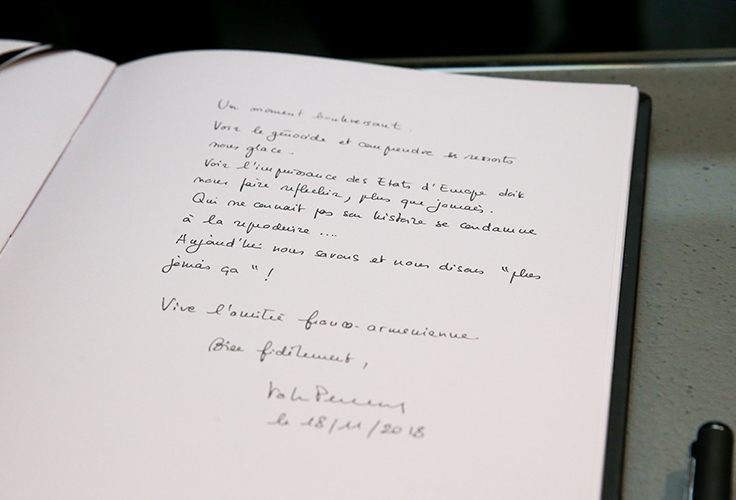 Un moment bouleversant.
Voir le génocide et comprendre ses ressorts
nous glace.
Voir l'impuissance des Etats d'Europe doit
nous faire réfléchir, plus que jamais.
Qui ne connait pas son histoire se condamne
à la reproduire ....
Aujourd'hui nous savons et nous disons "plus
jamais ça" !
Vive l'amitié franco-arménienne
Bien fidèlement,
le 18/11/2018